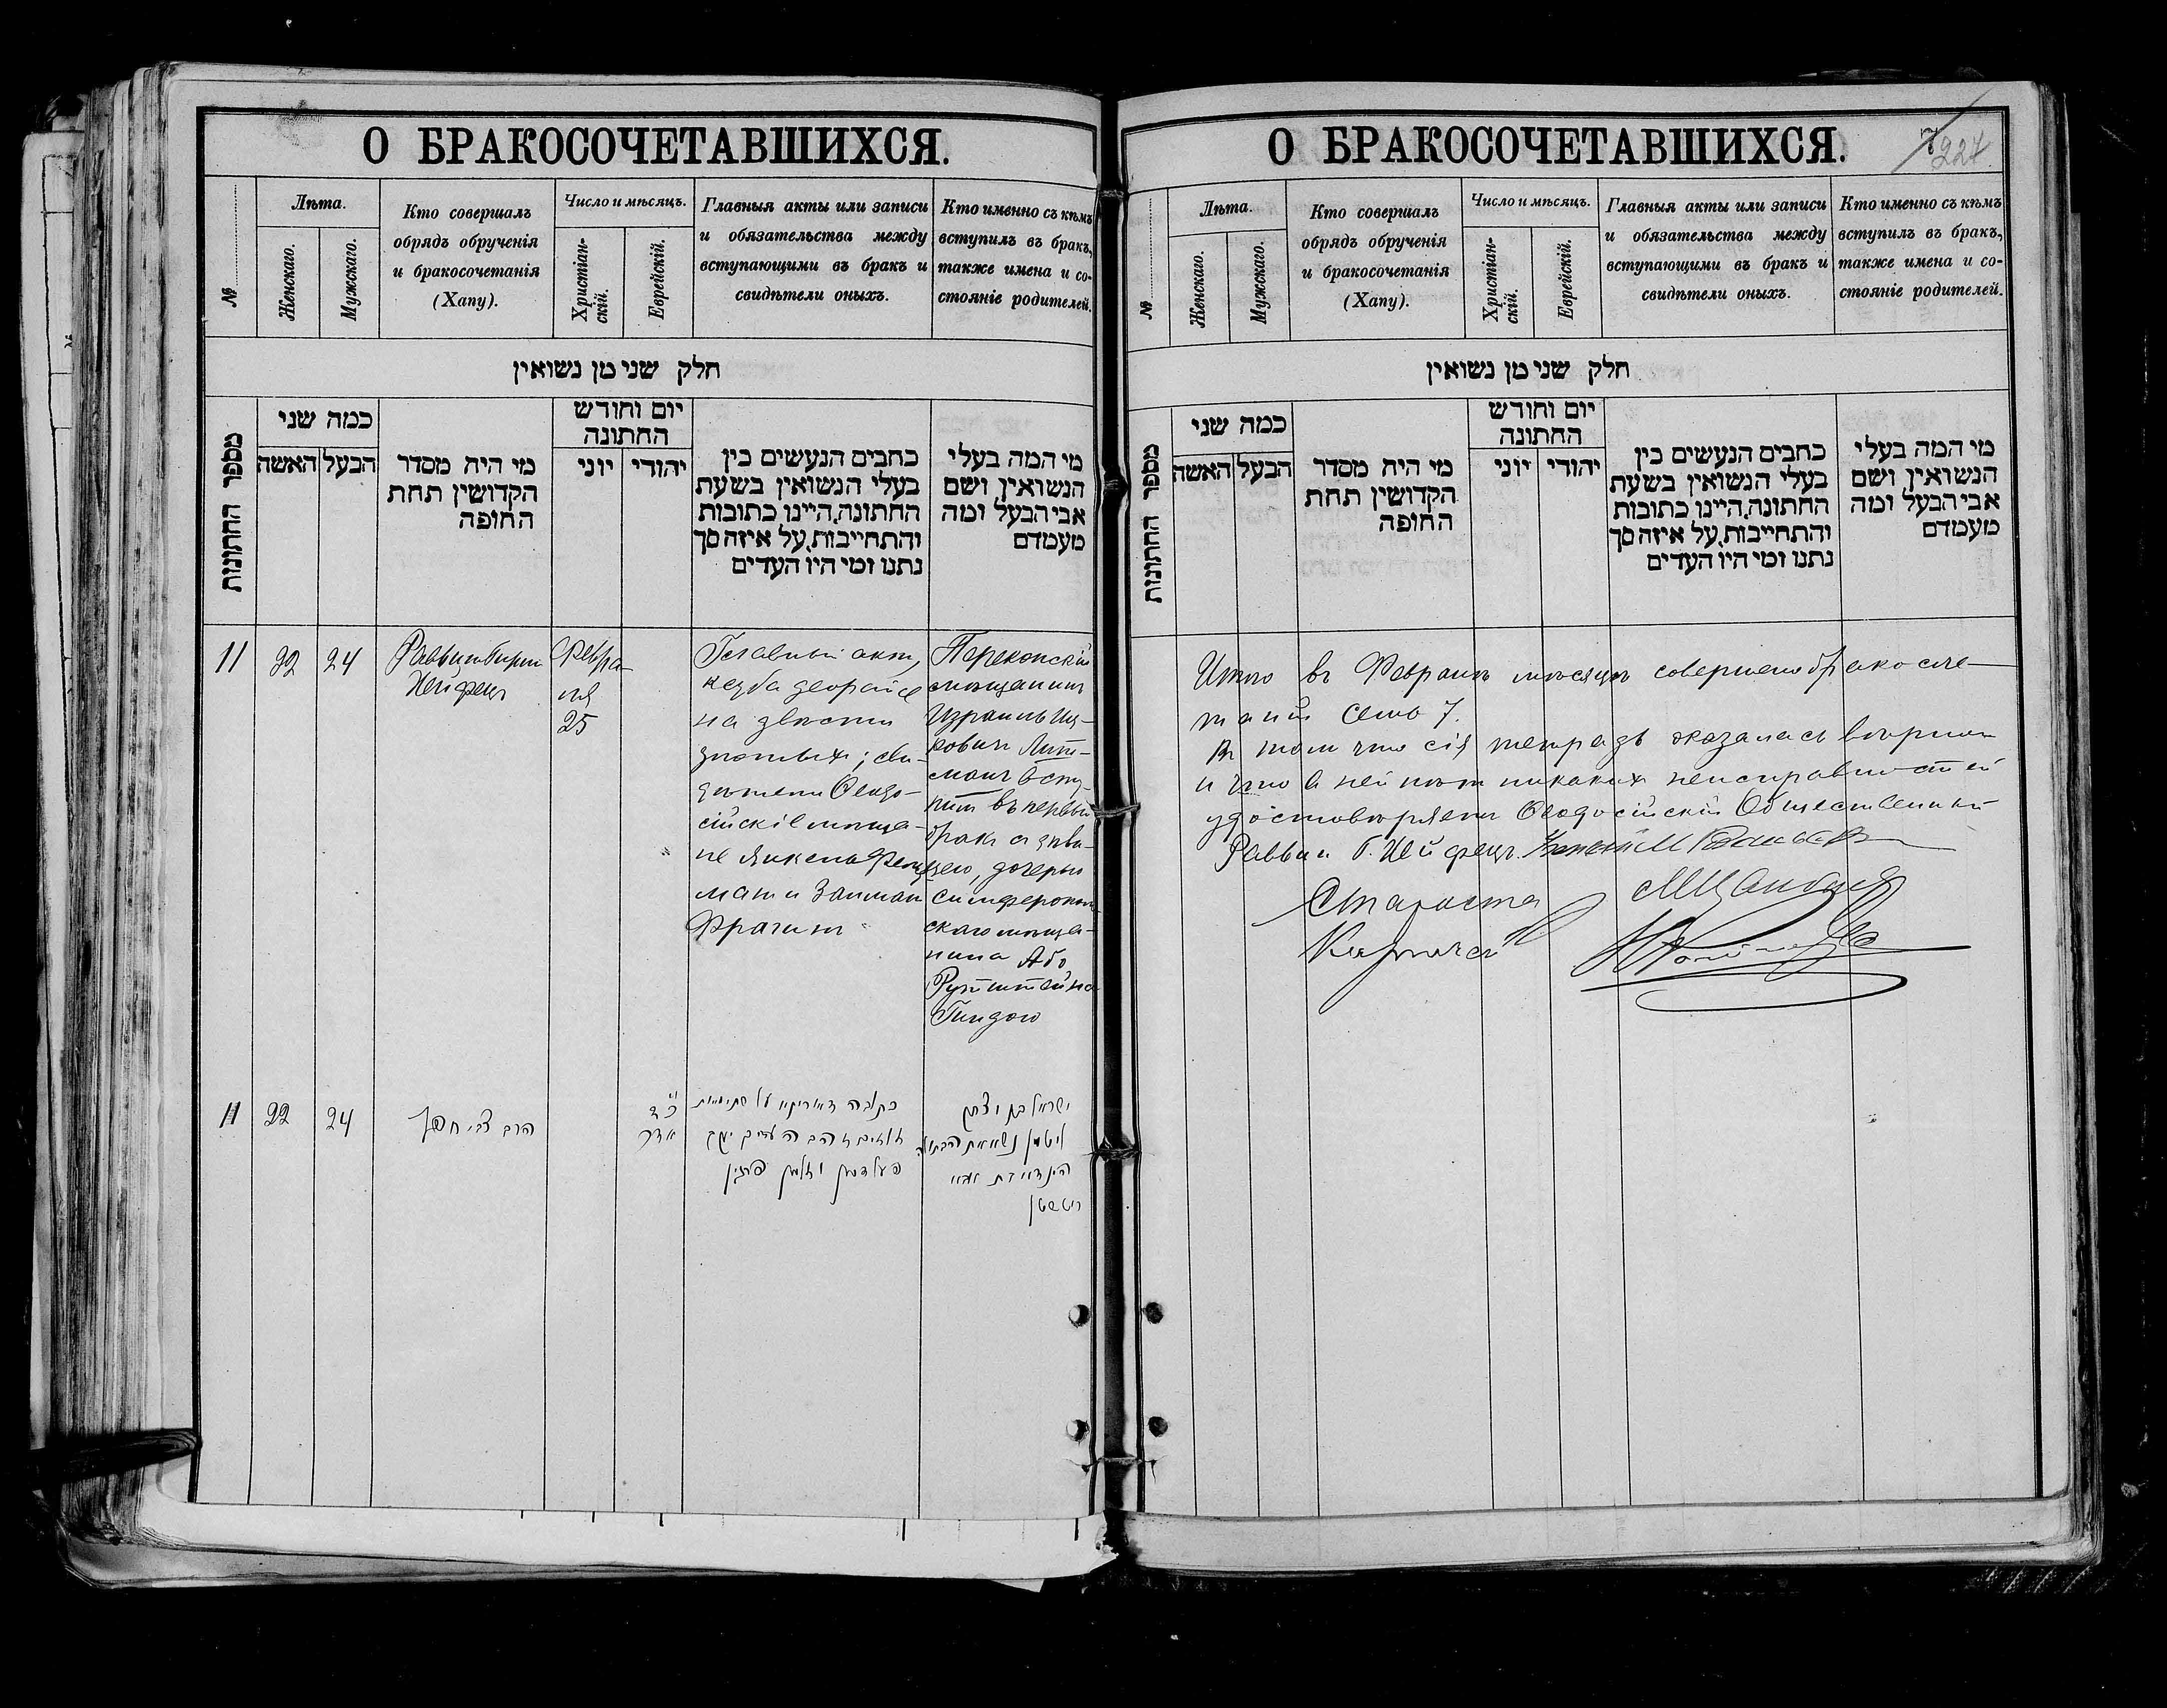 О БРАКОСОЧЕТАВШИХСЯ.
№
Лѣта.
Женскаго.
Мужскаго.
Кто совершалъ
обрядъ обрученія
и бракосочетанія
(Хапу).
Число и мѣсяцъ.
Христіан-
скій.
Еврейскій.
Главныя акты или записи
и обязательства между
вступающими въ бракъ и
свидѣтели оныхъ.
Кто именно съ кѣмъ
вступилъ въ бракъ,
также имена и со-
стояніе родителей.
חלק שני מן נשואין
מספר החתונות
כמה שני
האשה
הבעל
מי היה מסדר
הקדושין תחת
החופה
יום וחודש
החתונה
יוני
יהודי
כתבים הנעשים בין
בעלי הנשואין בשעת
החתונה, היינו כתובות
והתחייבות, על איזה סך
נתנו ומי היו העדים
מי המה בעלי
הנשואין, ושם
אבי הבעל ומה
מעמדם
11
22
24
Раввин Гирш
Хейфец
Февра-
ля
25
Главный акт,
кезба деорайсе
на двести
злотых; сви-
детели Феодо-
сійскіе меща-
не
и Залман
Фрагин
Перекопскій
мещанин
Израиль Иц-
кович Лит-
ман всту-
пил въ первый
брак с деви-
цею, дочерью
симферополь-
скаго меща-
нина Або
Рутштейна
Гиндою
11
22
24
הרב צבי חפץ
כ״ד
אדר
כתובה דאורייתא על שתי מאות
זהובים זהב העדים יעקב
פעלדמן וזלמן פרגין
ישראל בן יצחק
ליטמן נשא את הבתולה
הינדא בת אבא
רוטשטן
О БРАКОСОЧЕТАВШИХСЯ.
7
224
№
Лѣта.
Женскаго.
Мужскаго.
Кто совершалъ
обрядъ обрученія
и бракосочетанія
(Хапу).
Число и мѣсяцъ.
Христіан-
скій.
Еврейскій.
Главныя акты или записи
и обязательства между
вступающими въ бракъ и
свидѣтели оныхъ.
Кто именно съ кѣмъ
вступилъ въ бракъ,
также имена и со-
стояніе родителей.
חלק שני מן נשואין
מספר החתונות
כמה שני
האשה
הבעל
מי היה מסדר
הקדושין תחת
החופה
יום וחודש
החתונה
יוני
יהודי
כתבים הנעשים בין
בעלי הנשואין בשעת
החתונה, היינו כתובות
והתחייבות, על איזה סך
נתנו ומי היו העדים
מי המה בעלי
הנשואין, ושם
אבי הבעל ומה
מעמדם
Итого въ Феврале месяце совершено бракосоче-
таній семь 7.
В том что сія тетрадь оказалась верною
и что в ней нет никаких неисправностей
удостоверяет Феодосійскій Общественный
Раввин Г. Хейфец.
Староста